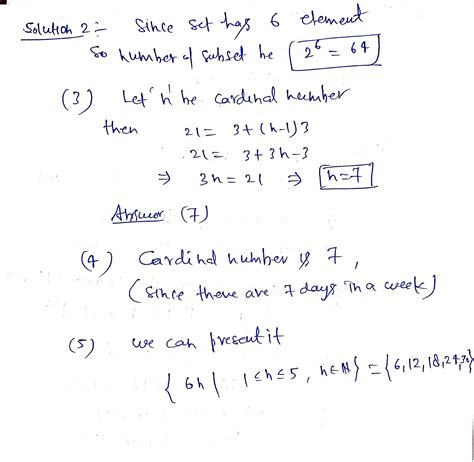 Solution 2 :- Since set has 6 element
So number of subset be 2⁶ = 64
(3) Let 'n' be cardinal number
then 21 = 3+(n-1)3
21 = 3+3n-3
⇒ 3n = 21 ⇒ n=7
Answer (7)
(4) Cardinal number is 7,
(Since there are 7 days in a week)
(5) we can present it
{ 6n | 1≤n≤5, n∈N} = {6,12,18,24,30}